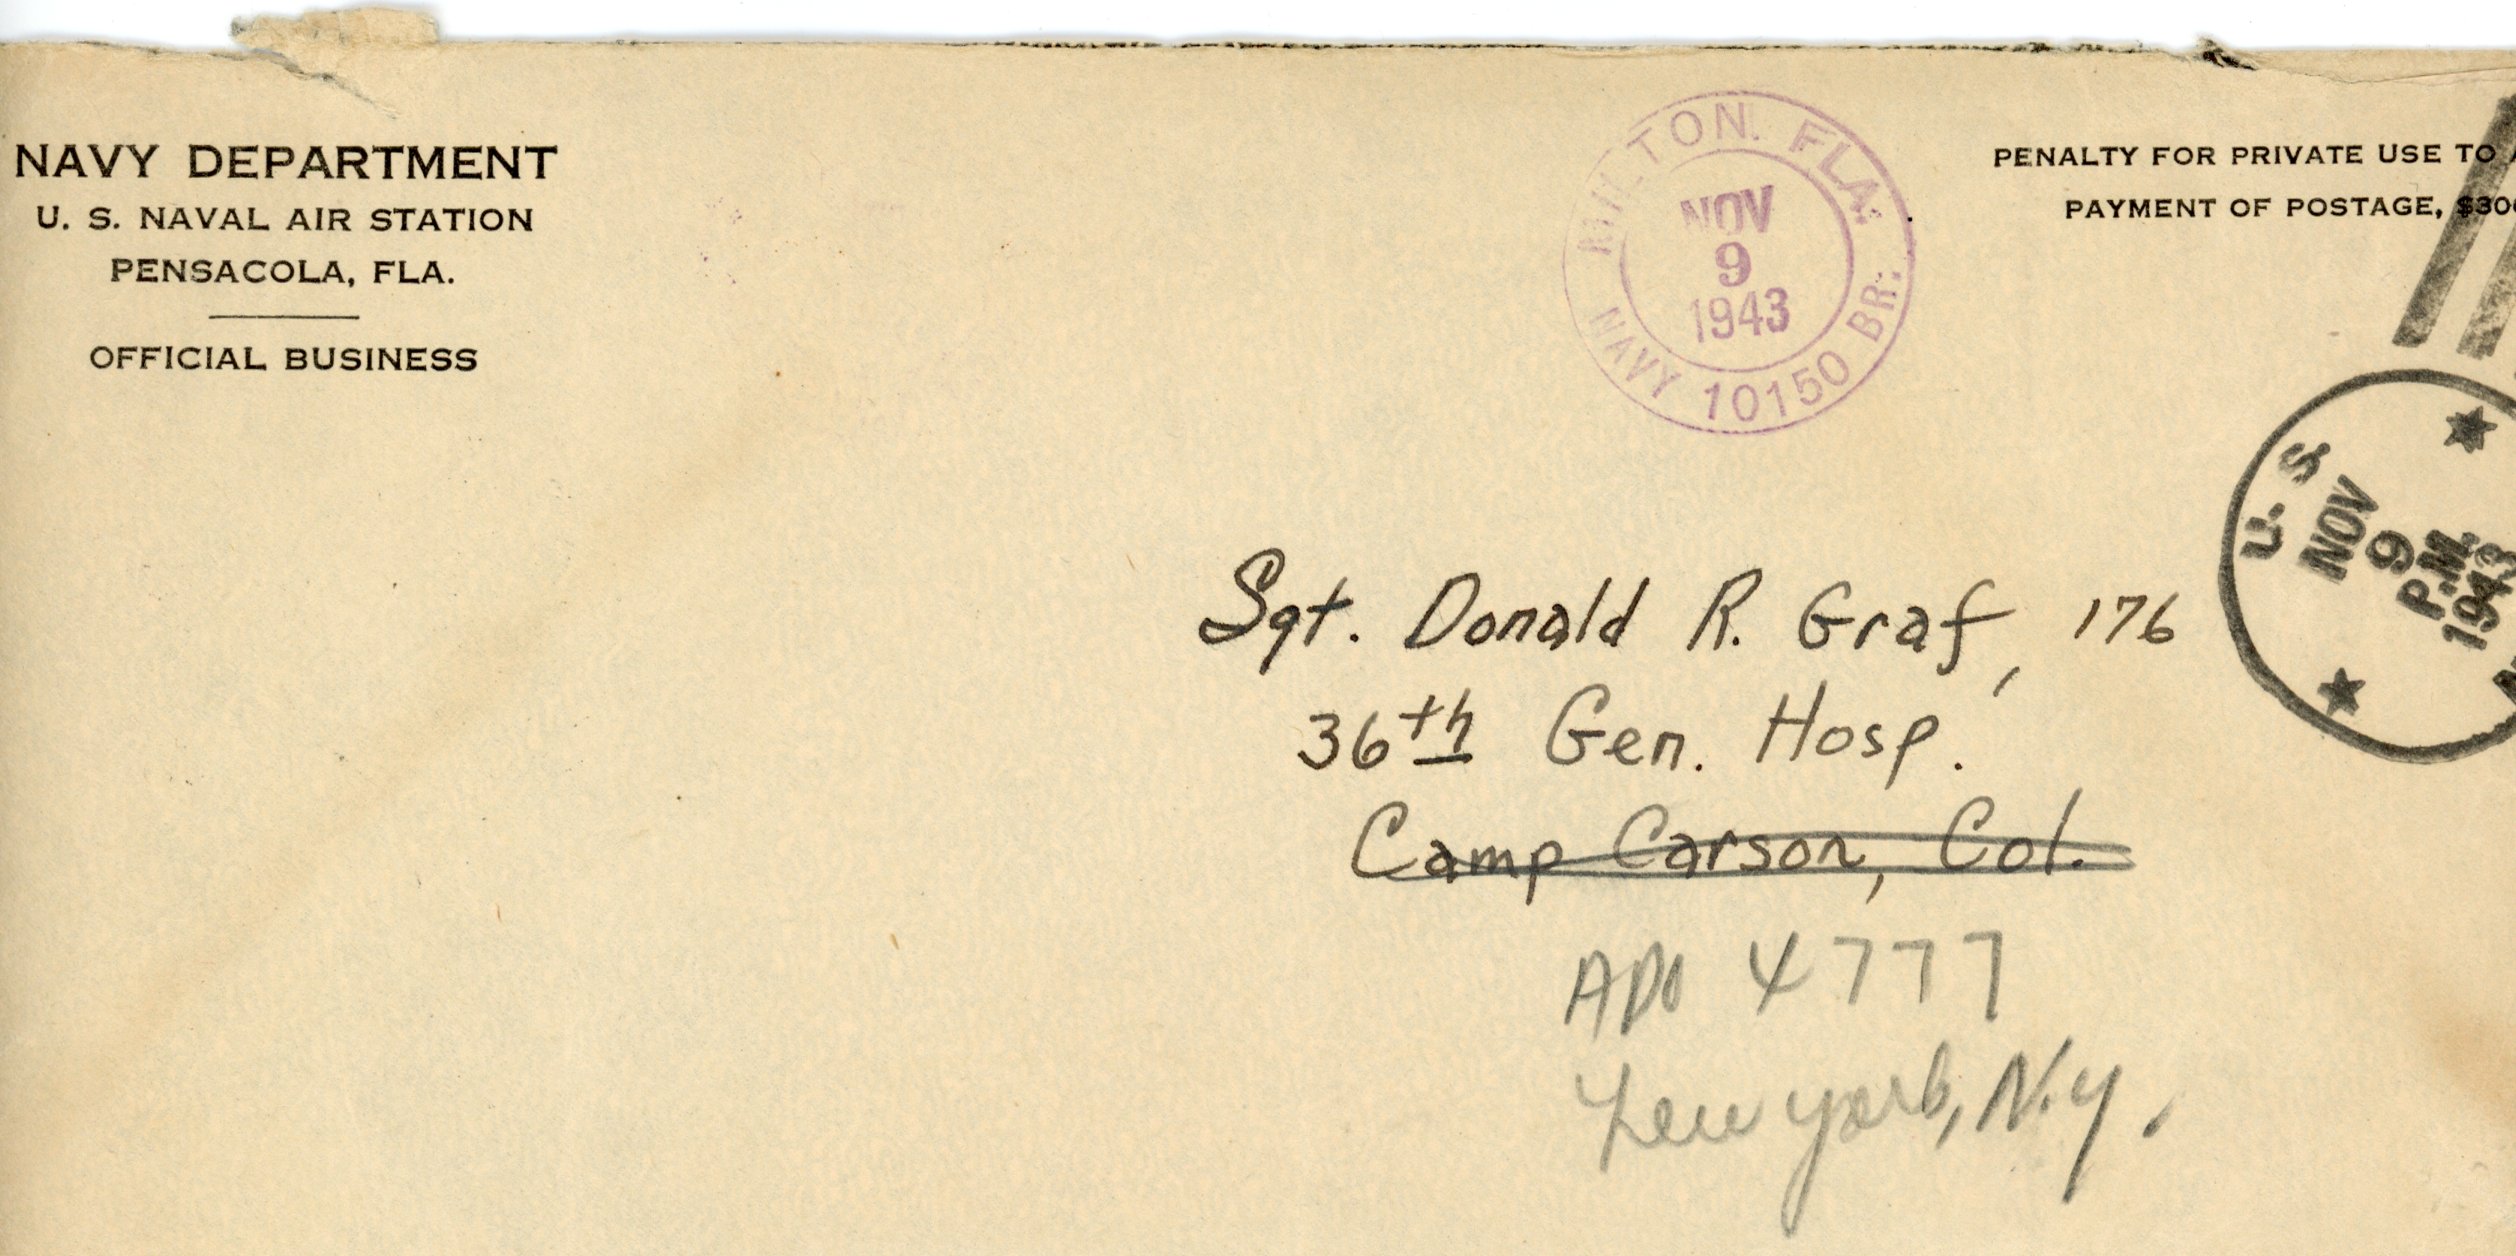 NAVY DEPARTMENT
U. S. NAVAL AIR STATION
PENSACOLA, FLA.
OFFICIAL BUSINESS
MILTON. FLA.
NOV
9
1943
NAVY 10150 BR.
PENALTY FOR PRIVATE USE TO
PAYMENT OF POSTAGE, $300
U. S.
NOV
9
P.M.
1943
Sgt. Donald R. Graf, 176
36th Gen. Hosp.
Camp Carson, Col.
APO 4777
New York, N.Y.